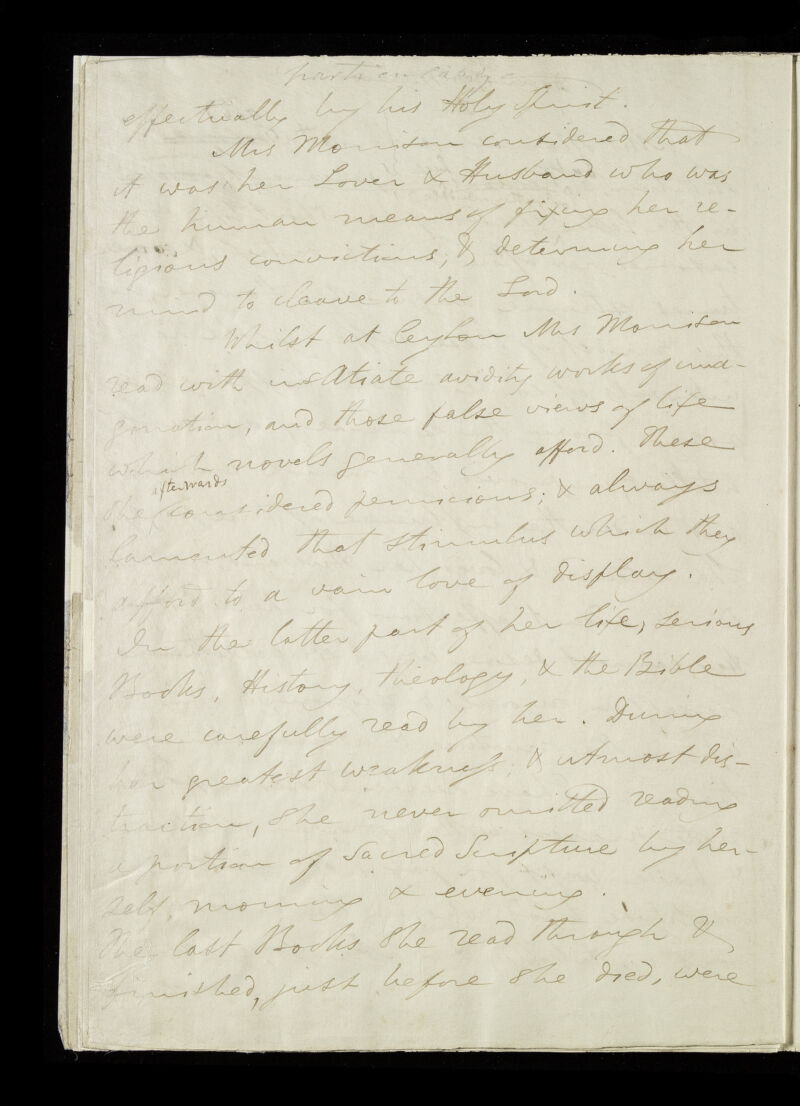 effectually by his Holy Spirit.
Mrs Morrison considered that
it was her Lover & Husband who was
the human means of fixing her re-
ligious convictions, & determining her
mind to cleave to the Lord.
Whilst at Ceylon Mrs Morrison
read with insatiate avidity works of imma-
gination, and those false views of life
which novels generally afford. These
afterwards
She considered pernicious; & always
lamented that stimulus which they
afford to a vain love of display.
In the latter part of her life, serious
Books, History, Theology, & the Bible
were carefully read by her. During
her greatest weakness, & utmost dis-
traction, she never omitted reading
a portion of Sacred Scripture by her-
self, morning & evening.
The last Books she read through &
finished, just before she died, were